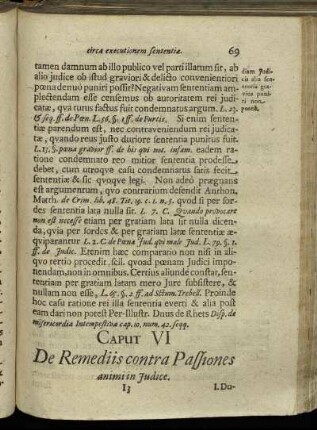 circa executionem sententiæ. 69
tamen damnum ab illo publico vel parti illatum sit, ab
alio judice ob istud graviori & delicto convenientiori
pœna denuò puniri possit? Negativam sententiam am-
plectendam esse censemus ob autoritatem rei judi-
catæ, quâ rursus factus fuit condemnatus argum. L. 23.
& seq. ff. de Pœn. L. 56. §. 1 ff. de Furtis. Si enim senten-
tiæ parendum est, nec contraveniendum rei judica-
tæ, quando reus justo duriore sententia punitus fuit.
L. 13. §. pœna gravior ff. de his qui not. infam. eadem ra-
tione condemnato reo mitior sententia prodesse
debet, cum utroque casu condemnatus satis fecit
sententiæ & sic quoque legi. Non adeò prægnans
est argumentum, quo contrarium defendit Anthon.
Matth. de Crim. lib. 48. Tit. 19. c. 1. n. 5. quod si per for-
des sententia lata nulla sit. L. 7. C. Quando provocare
non est necesse etiam per gratiam lata sit nulla dicen-
da, quia per sordes & per gratiam latæ sententiæ æ-
quiparantur L. 2. C. de Pœna Jud. qui male Jud. L. 79. §. 1.
ff. de Judic. Etenim hæc comparatio non nisi in ali-
quo tertio procedit, scil. quoad pœnam Judici impo-
nendam, non in omnibus. Certius aliunde constat, sen-
tentiam per gratiam latam mero Jure subsistere, &
nullam non esse, L. 65. §. 2. ff. ad SCtum. Trebell. Proinde
hoc casu ratione rei illa sententia everti & alia post
eam dari non potest Per-Illustr. Dnus de Rhets Disp. de
misericordia Intempestiva cap. 10. num. 42. seqq.
eum Judi-
cis alia sen-
tentia gra-
vius puni-
ri non
potest.
CAPUT VI
De Remediis contra Passiones
animi in Judice.
I3 I. Du-